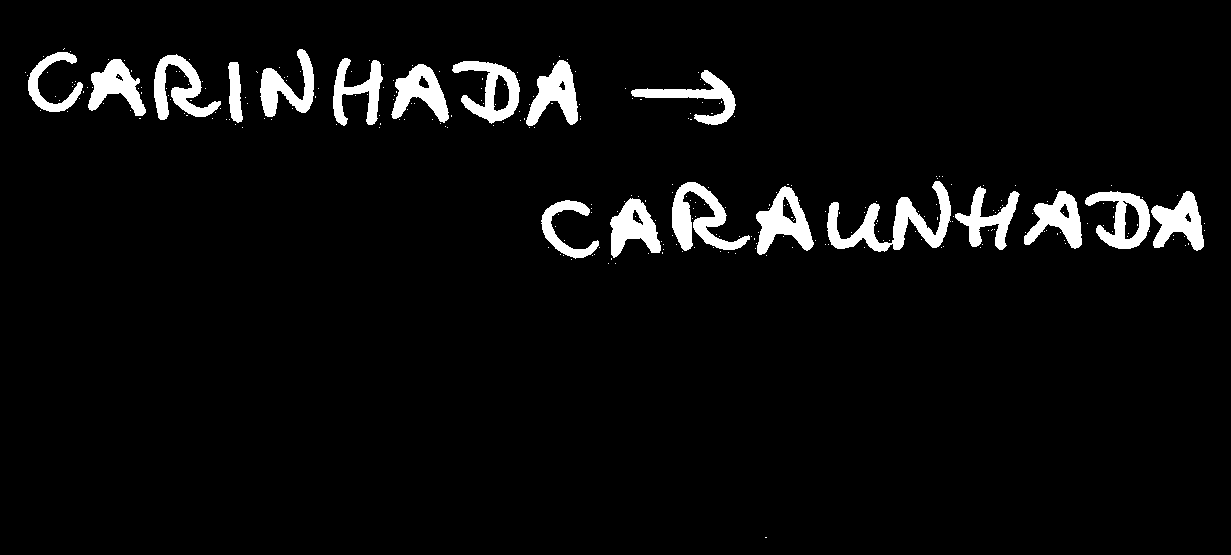 CARINHADA →
CARAUNHADA